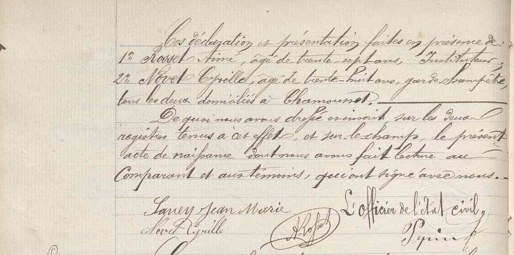 Ces déclaration et présentation faites en présence de:
1º Rosset Aimé, âgé de trente-sept ans, Instituteur,
2º Névet Cyrille, âgé de trente-huit ans, garde champêtre,
tous les deux domiciliés à Chamounet.
De quoi nous avons dressé en inscrit sur les deux
registres tenus à cet effet, et sur-le-champs, le présent
acte de naissance dont nous avons fait lecture au
Comparant et aux témoins, qui ont signé avec nous.
Savey Jean Marie L'officier de l'état civil,
Nevet Cyrille ARosset Pepin